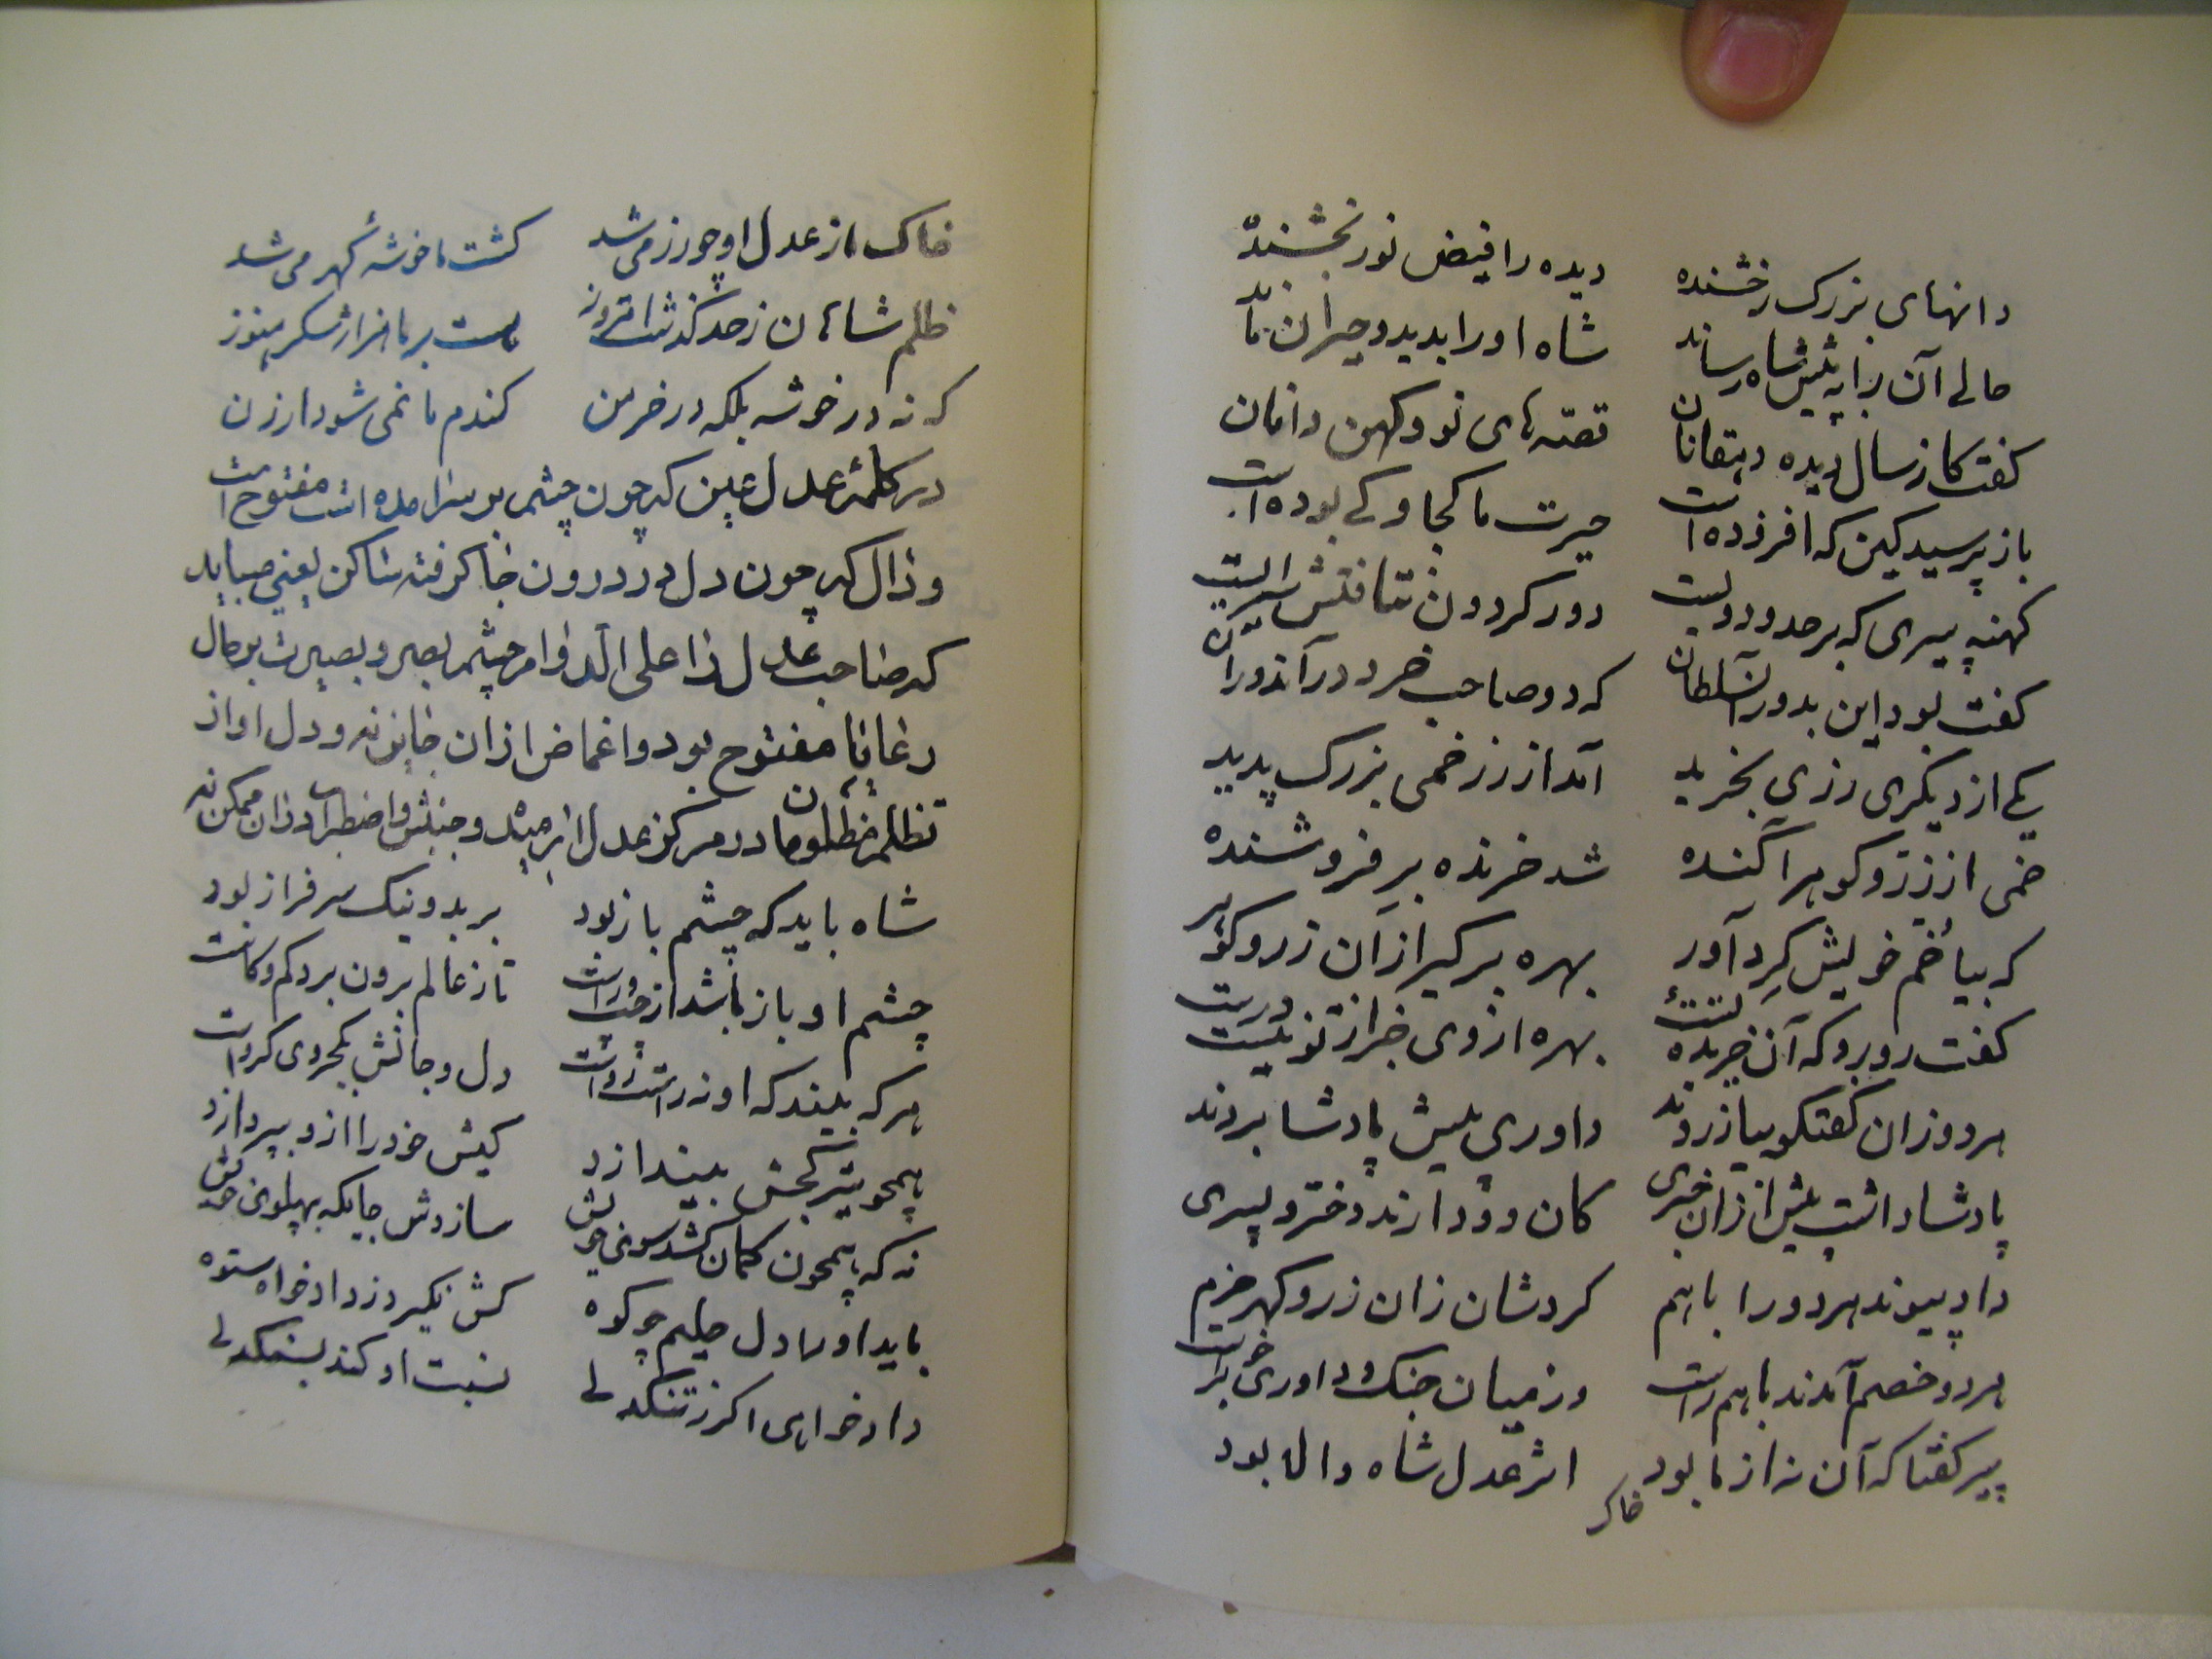 دانهای بزرک رخشنده دیده را فیض نور بخشنده
حالی آن را به پیش شاه رساند شاه او را بدید و حیران ماند
کفت کاز سال دیده دهقانان قصّه های نو و کهن دانان
باز پرسید کین که افزوده است حیرت ما کجا و کی بوده است
کهنه پیری که بر حدود دویست دور کردون
کفت بود این بدور آن سلطان که دو صاحب خرد در آن دوران
یکی از دیکری رزی بخرید آمد از رز خمی بزرک پدید
خمی از زرّ و کوهر آکنده شد خرنده بر فروشنده
که بیا خم خویش کرد آور بهره بر کیر از آن زر و کوهر
کفت رو رو که آن خریده تست بهره از وی جز از تو نیست درست
هر دو زان کفتکو بیازردند داوری پیش پادشا بردند
پادشا داشت پیش از زان خبری کان دو دارند دختر و پسری
داد پیوند هر دو را باهم کرد شان زان زر و کهر خرم
هر دو خصم آمدند باهم راست وز میان جنک و داوری بر خاست
پیر کفتا که آن نه از ما بود اثر عدل شاه والا بود
خاک
خاک از عدل او چو رز می شد کشت ما خوشه کهر می شد
ظلم شاهان ز حد کذشت امروز هست بر ما هزار شکر هنوز
که نه در خوشه بلکه در خرمن کندم ما نمی شود ارزن
در کلمهٔ عدل عین که چون چشم بر سر آمده است مفتوح است
و دال که چون دل در درون جا کرفته ساکن یعنی میباید
که صاحب عدل را علی الدوام چشم بصر و بصیرت بر حال
رعایا مفتوح بود و اغماض از آن جایز نه و دل او از
تظلم مظلومان در مرکز عدل آرمیده و جنبش و اضطراب از آن ممکن نه
شاه باید که چشم باز بود بر بد و نیک سرفراز بود
چشم او باز باشد از چپ و راست تا ز عالم برون برد کم و کاست
هر که بیند که او نه راست رواست دل و جانش بکجروی کرواست
همچو تیر کجش بیندازد کیش خود را ازو بپردازد
نه که همچون کمان کشد سوی خویش سازدش جایکه بپهلوی خویش
باید او را دل حلیم چو کوه کش نکیرد ز داد خواه ستوه
داد خواهی اکر ز تنکدلی نسبت او کند بسنکدلی